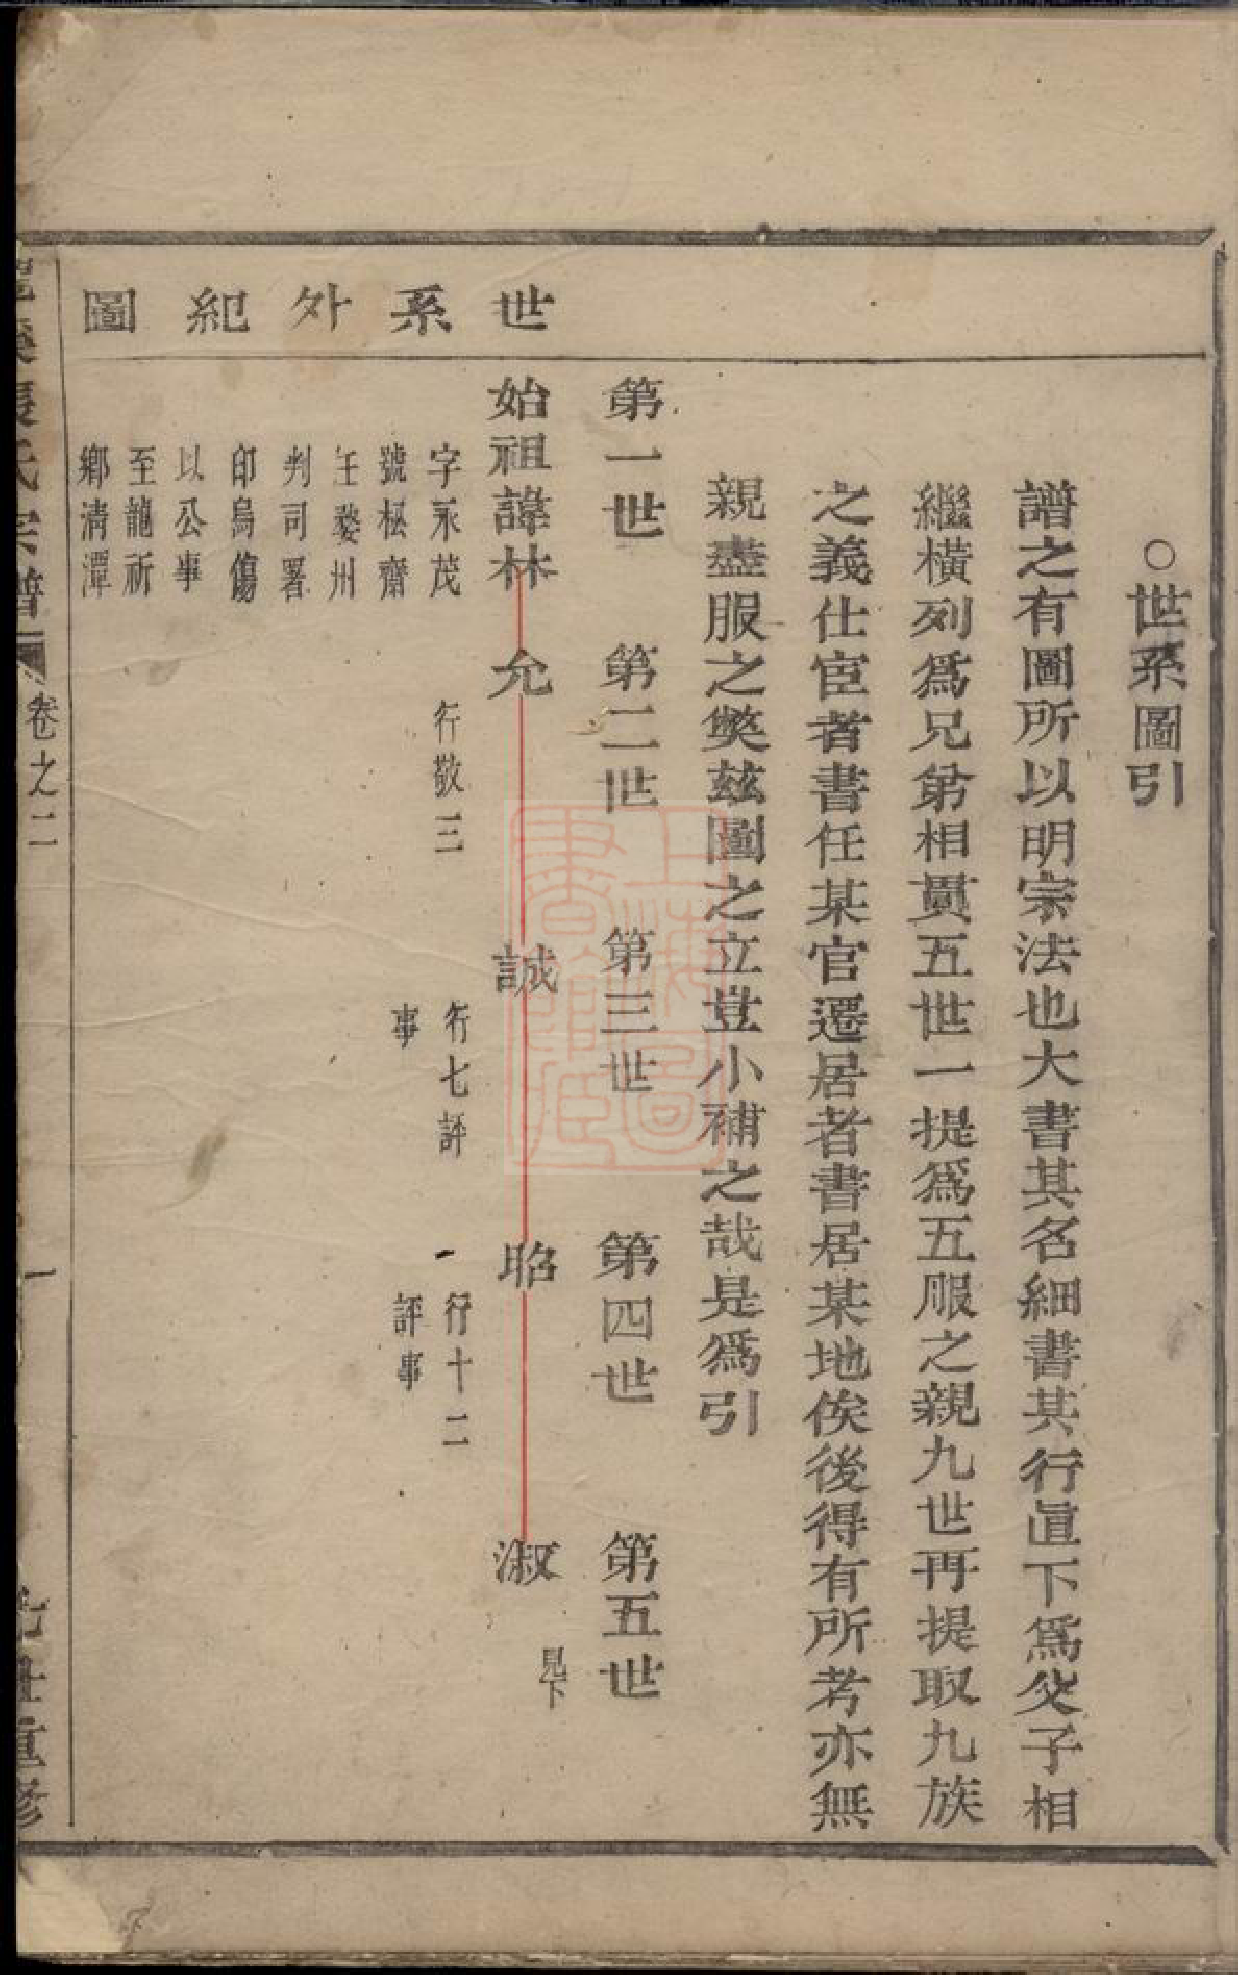 ○世系圖引
譜之有圖所以明宗法也大書其名細書其行直下爲父子相
繼橫列爲兄弟相貫五世一提爲五服之親九世再提取九族
之義仕宦者書任某官遷居者書居某地俟後得有所考亦無
親盡服之獘兹圖之立豈小補之哉是爲引
世系外紀圖
第一世 第二世 第三世 第四世 第五世
始祖諱林 允 誠 昭 淑
見下
字永茂
號極齋
任婺州
判司署
印烏傷
以公事
至龍祈
鄉清潭
行敬三
行七評
事
行十二
評事
張氏宗譜 卷之二
一
重修
上海圖書館藏